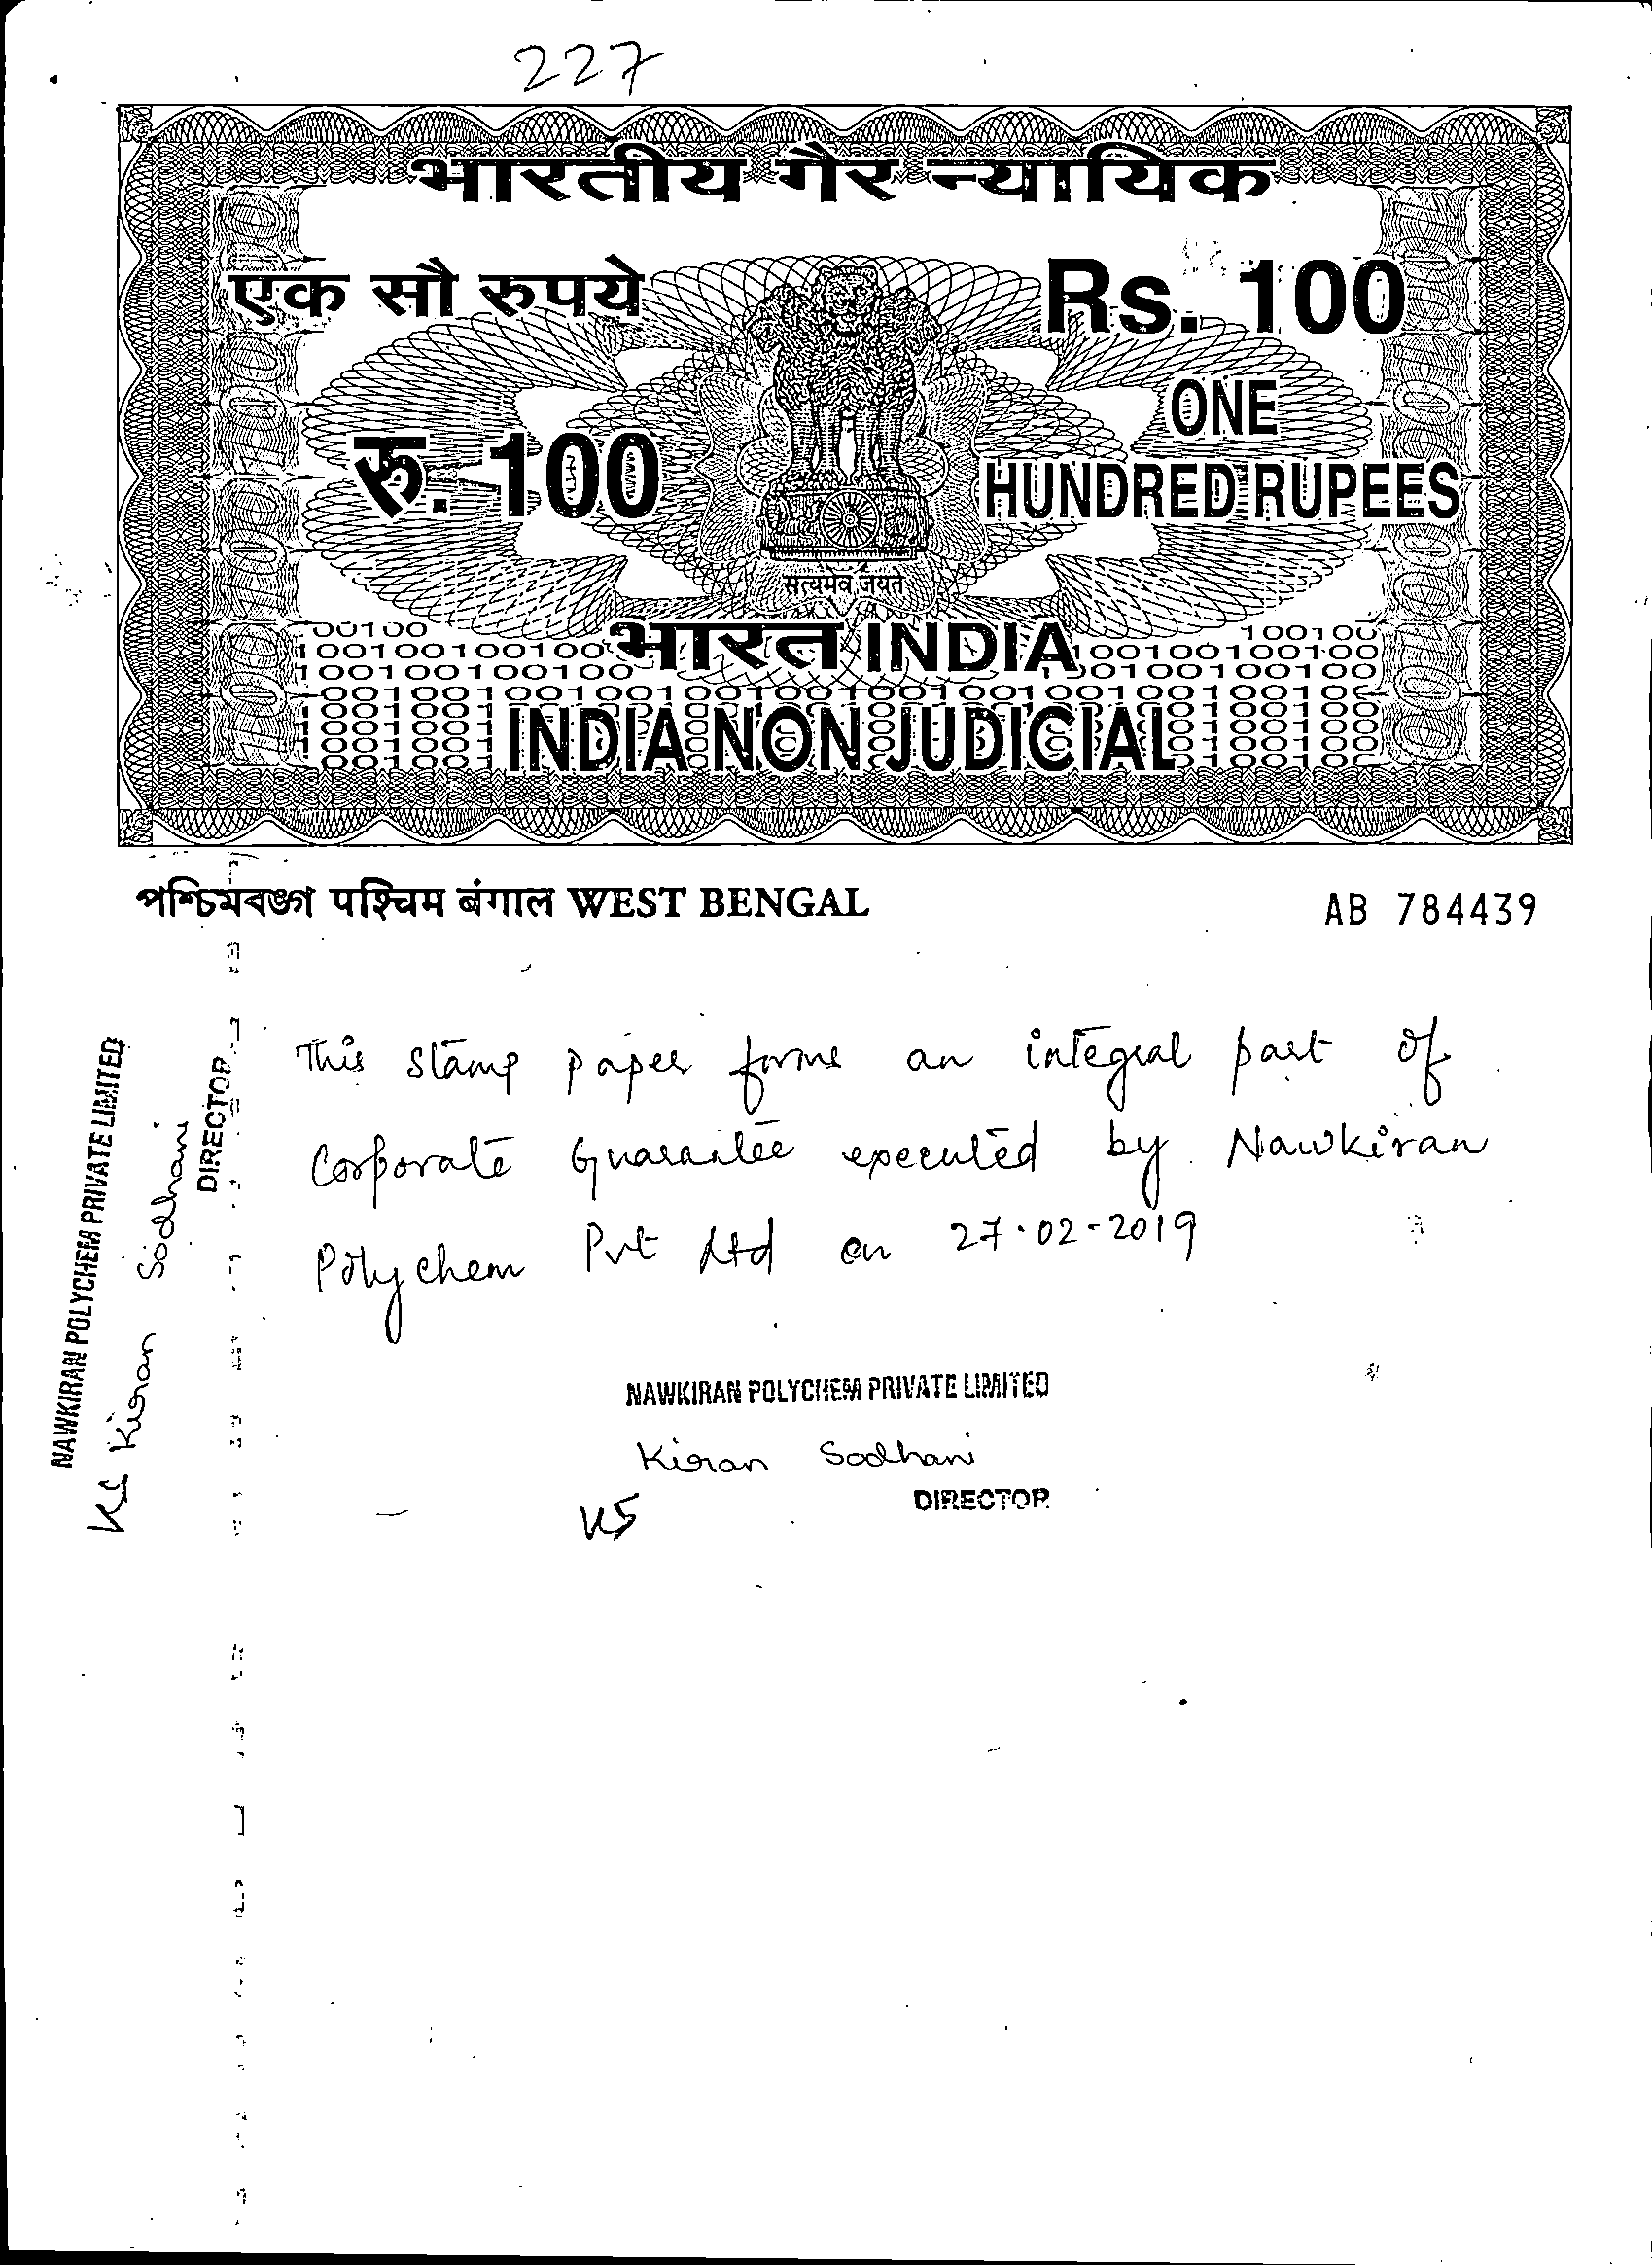 227
भारतीय गैर न्यायिक
एक सौ रुपये
Rs. 100
रु. 100
ONE
HUNDRED RUPEES
सत्यमेव जयते
भारत INDIA
INDIA NON JUDICIAL
পশ্চিমবঙ্গ पश्चिम बंगाल WEST BENGAL
AB 784439
This stamp paper forms an integral part of
Corporate Guarantee executed by Nawkiran
Polychem Pvt Ltd on 27.02-2019
NAWKIRAN POLYCHEM PRIVATE LIMITED
Kiran Sodhani
DIRECTOR
KS
NAWKIRAN POLYCHEM PRIVATE LIMITED
KS Kiran Sodhani
DIRECTOR